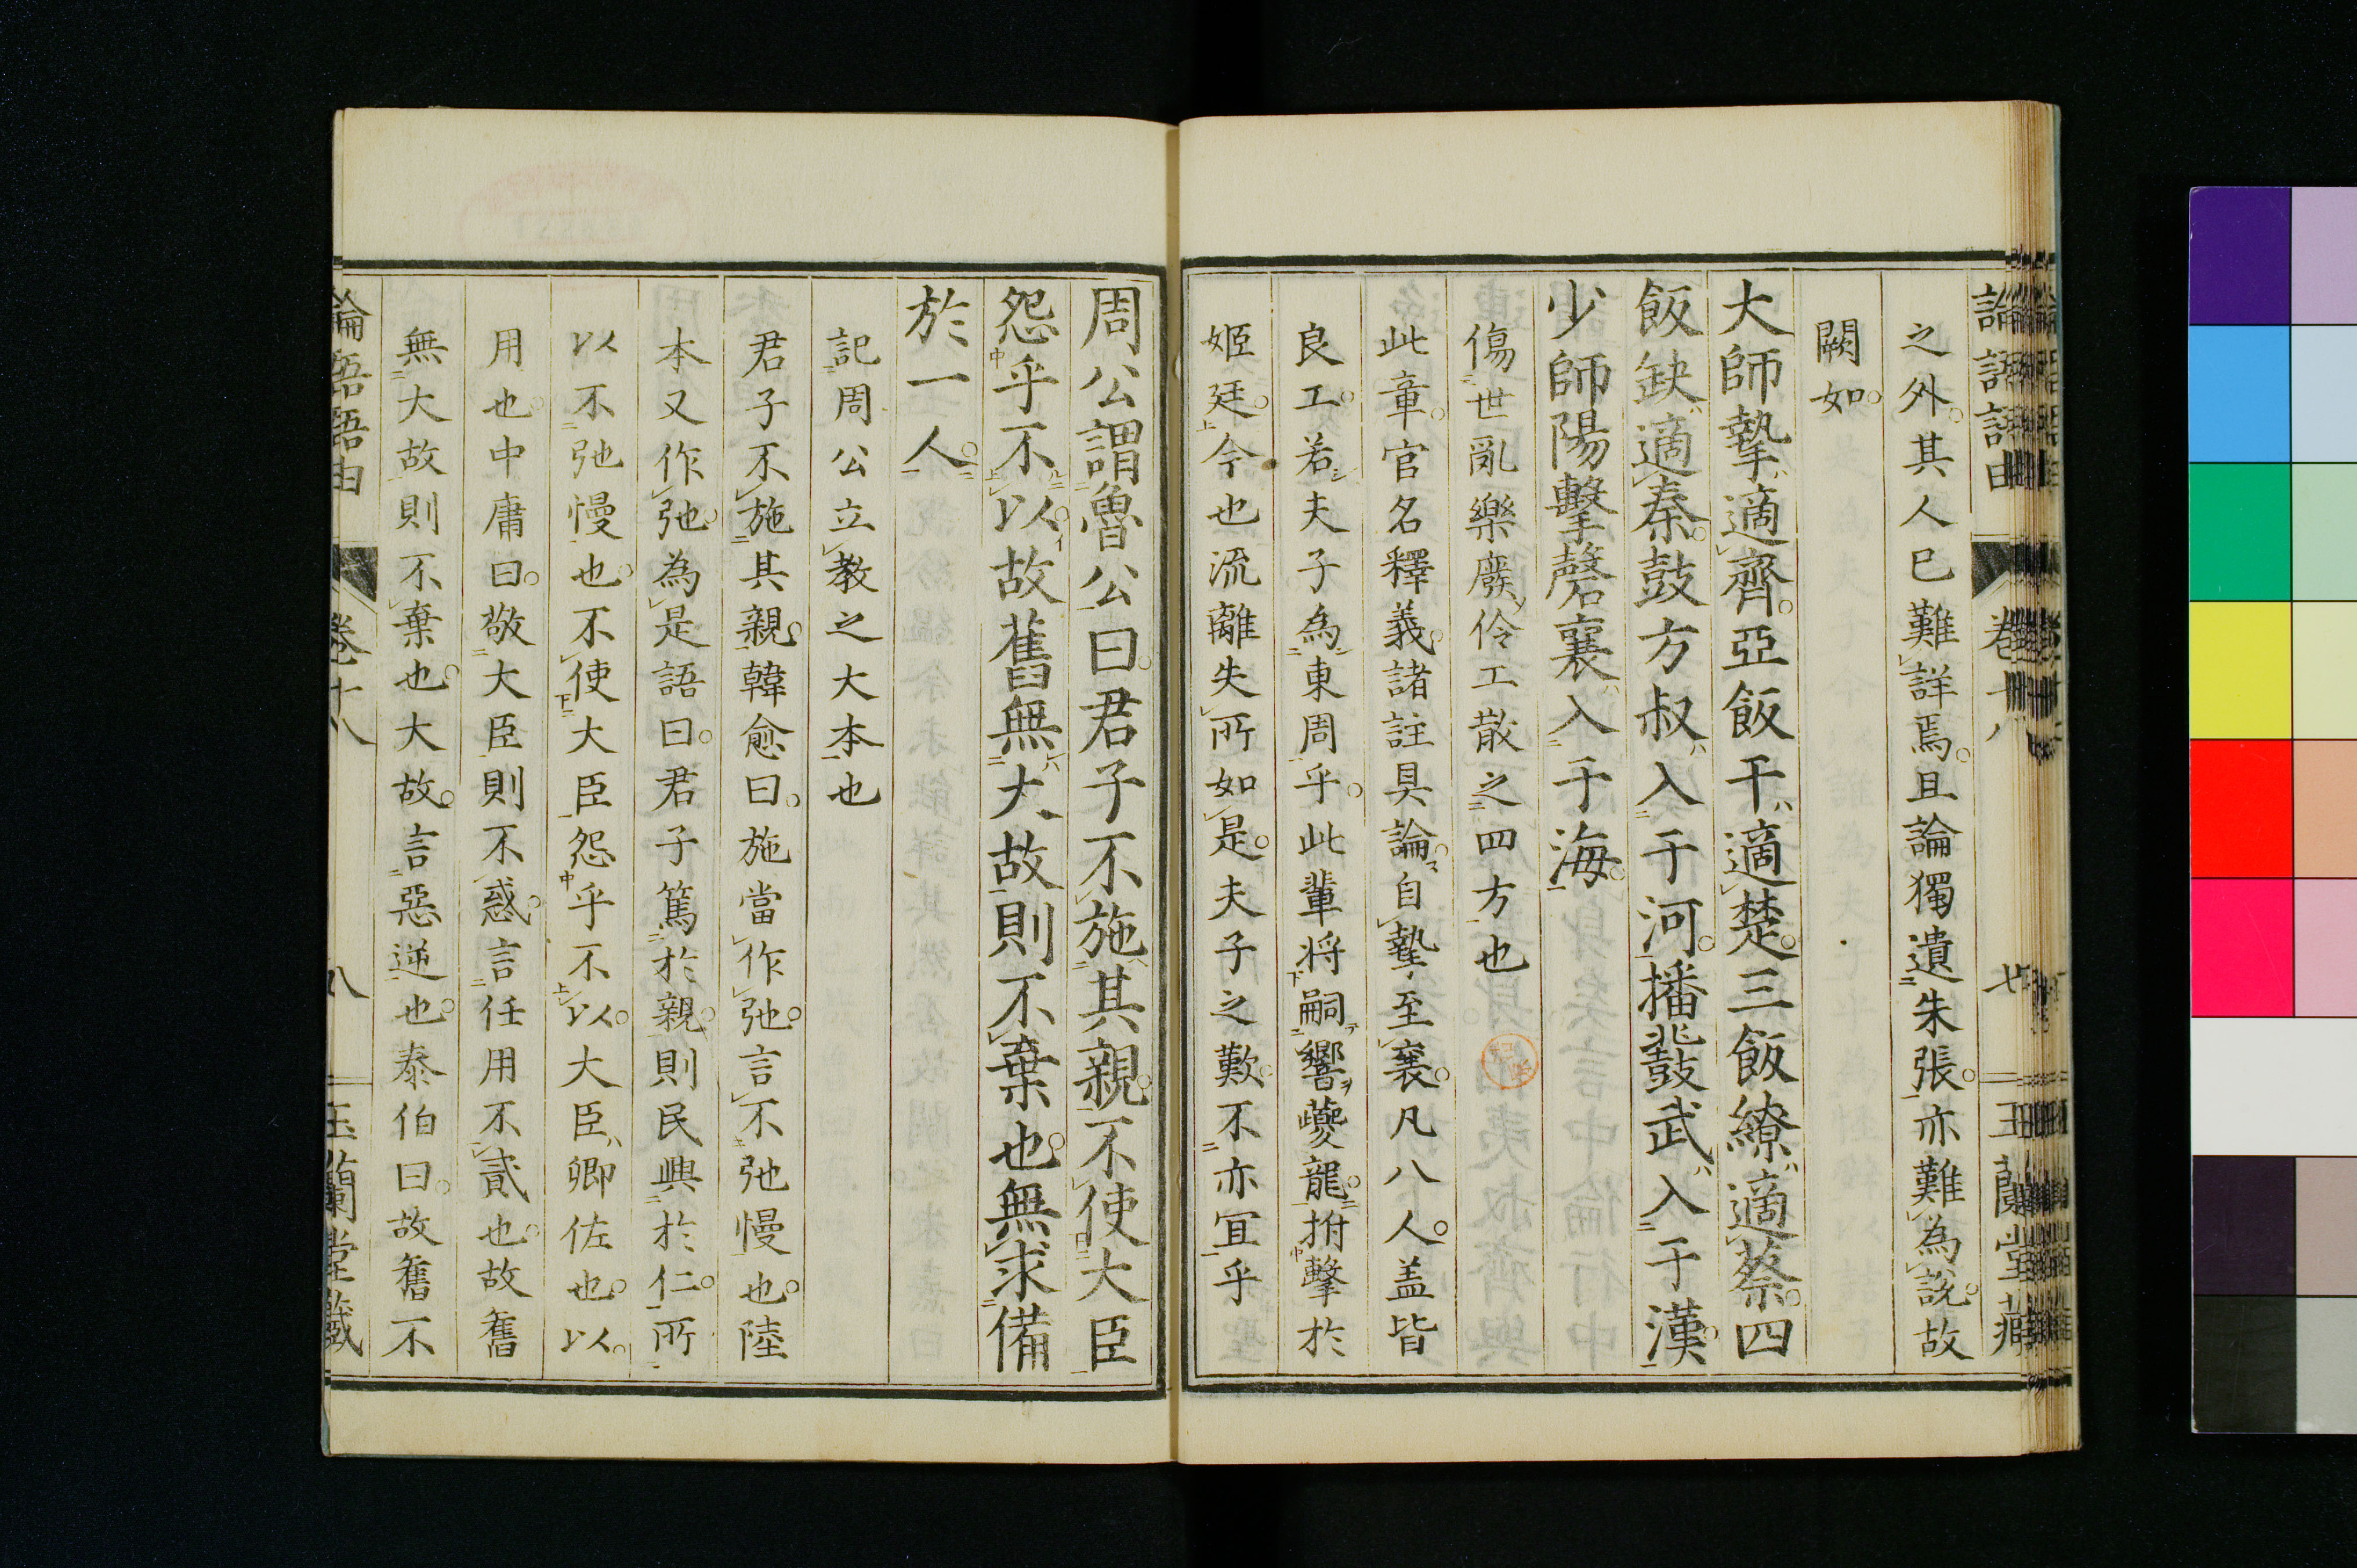 之外其人已難詳焉且論獨遺朱張亦難為說故
闕如
大師摯適齊亞飯干適楚三飯繚適蔡四
飯缺適秦鼓方叔入于河播鼗武入于漢
少師陽擊磬襄入于海
傷世亂樂廢伶工散之四方也
此章官名釋義諸註具論自摯至襄凡八人盖皆
良工若夫子為東周乎此輩将嗣響夔龍拊擊於
姬廷今也流離失所如是夫子之歎不亦宜乎
周公謂魯公曰君子不施其親不使大臣
怨乎不以故舊無大故則不棄也無求備
於一人
記周公立教之大本也
君子不施其親韓愈曰施當作弛言不弛慢也陸
本又作弛為是語曰君子篤於親則民興於仁所
以不弛慢也不使大臣怨乎不以大臣卿佐也以
用也中庸曰敬大臣則不惑言任用不貳也故舊
無大故則不棄也大故言惡逆也泰伯曰故舊不
論語語由 卷十八 八 玉蘭堂藏